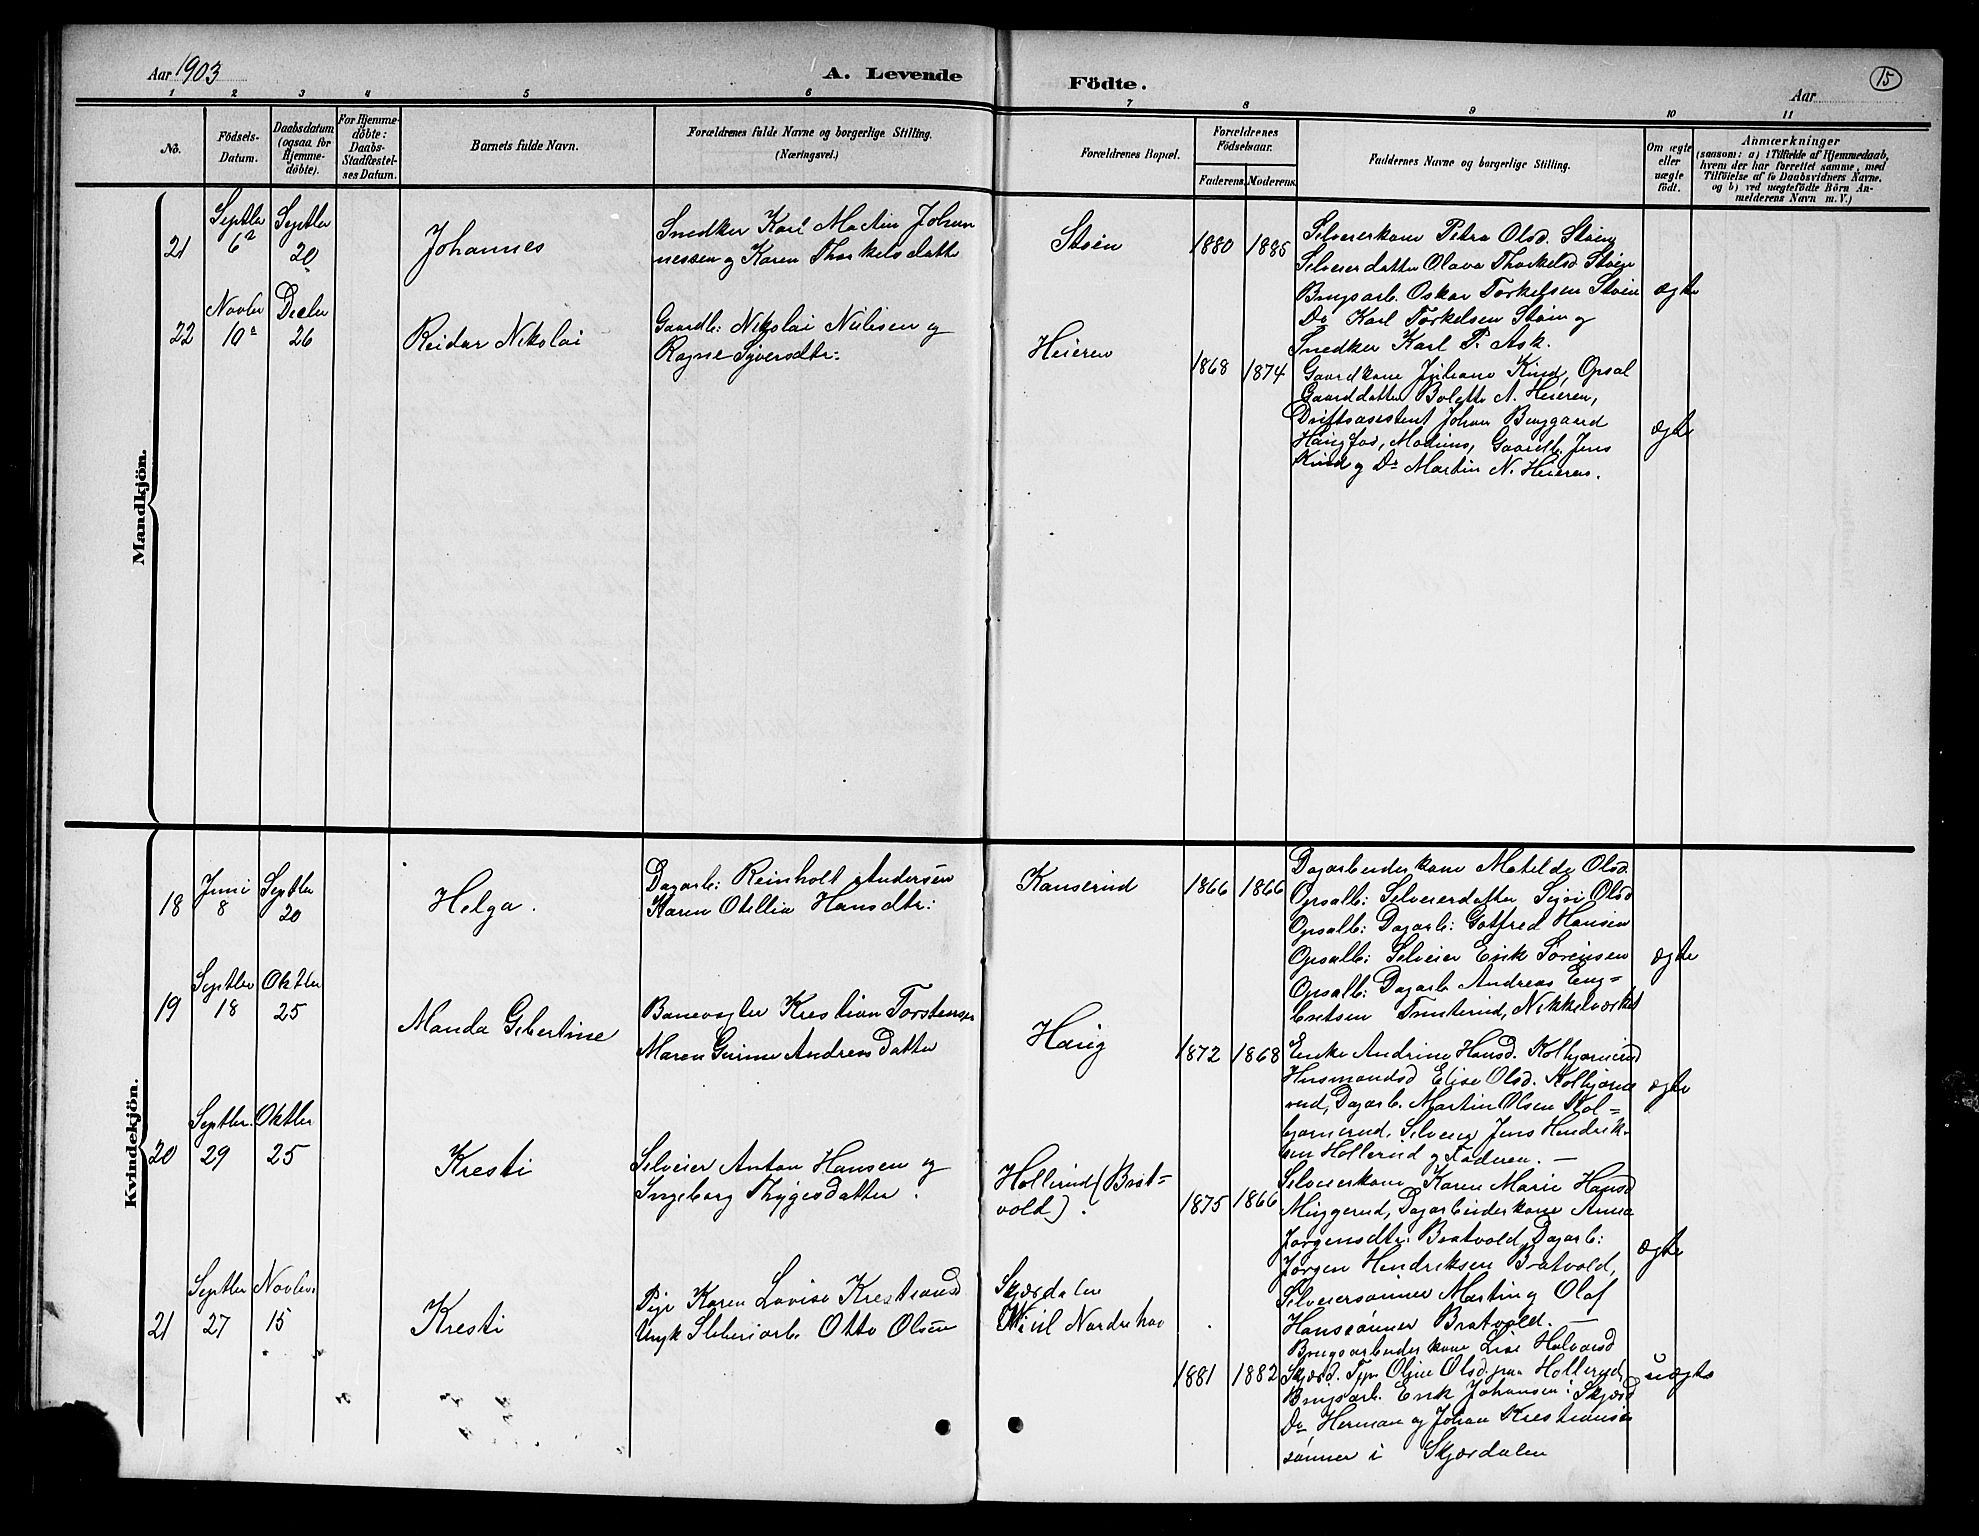 Aar 1903
A. Levende
Födte.
15
Aar
1 2 3 4 5 6 7 8 9 10 11
No.
Födsels-
Datum.
Daabsdatum
(ogsaa for
Hjemme-
döbte).
For Hjemme-
döbte:
Daabs-
Stadfæstel-
ses Datum.
Barnets fulde Navn.
Forældrenes fulde Navne og borgerlige Stilling.
(Næringsvei.)
Forældrenes Bopæl.
Forældrenes
Födselsaar.
Faderens. Moderens.
Faddernes Navne og borgerlige Stilling.
Om ægte
eller
uægte
födt.
Anmærkninger
(saasom: a) i Tilfælde af Hjemmedaab,
hvem der har forrettet samme, med
Tilföielse af to Daabsvidners Navne.
og b) ved uægtefödte Börn An-
melderens Navn m.V.)
Mandkjön.
21
Septbr
6
Septbr
20
Johannes
Snedker Karl Martin Johan
nessen og Karen Thorkelsdatte
Støen
1880 1885
Selveierkone Petra Olsd. Støen
Selveierdatter Olava Thorkelsd Støen
Brugsarb. Oskar Torkelsen Støen
Do Karl Torkelsen Støen og
Snedker Karl P. Ask.
ægte
22
Novbr
10
Decbr
26
Reidar Nikolai
Gaardb: Nikolai Nilsen og
Ragne Syversdtr:
Heieren
1868 1874
Gaardkone Juliane Kind, Opsal
Gaarddatter Bolette N. Heieren,
Driftsasistent Johan Bruggaard
Modums, Gaardb. Jens
Kind og Do Martin N. Heieren.
ægte
Kvindekjön.
18
Juni
8
Septbr
20
Helga.
Dagarb: Reinholt Andersen
Karen Otellia Hansdtr:
Kanserud
1866 1866
Dagarbeiderkone Matilde Olsd.
Opsalb: Selveierdatter Olsd
Opsalb: Dagarb: Gotfred Hansen
Opsalb: Selveier Erik Sørensen
Opsalb: Dagarb Andreas Eng=
bretsen Nikkelværket
ægte
19
Septbr
18
Oktbr
25
Manda Gibertine
Banevogter Krestian Torstensen
Maren Gurine Andreasdatter
Haug
1872 1868
Enke Andrine Hansd. Kolbjørnrud
Husmandsd Elise Olsd. Kolbjørns
rud, Dagarb. Martin Olsen Kol=
bjørnrud, Selveier Jens Hendrik-
sen Hollerud og Faderen. —
ægte
20
Septbr.
29
Oktbr
25
Kresti
Selveier Anton Hansen og
Ingeborg Thygesdatter.
Hollerud (Brat=
vold).
1875 1866
Selveierkone Karen Marie Hansd
Muggerud, Dagarbeiderkone Anna
Jørgensdtr: Bratvold, Dagarb:
Jørgen Hendriksen Bratvold,
Selveiersønner Martin og Olaf
Hanssønner Bratvold. —
ægte
21
Septbr
27
Novbr.
15
Kresti
Pige Karen Lovise Krestiansd
Ungk Sliberiarb Otto Olsen
Skjærdalen
Norderhov
1881 1882
Brugsarbeiderkone Lise Halvorsd
Skjærd. Olsd. paa Hollerud,
Brugsarb. Erik Johansen i Skjærd
Do Herman og Johan Krestiansen
sønner i Skjærdalen
uægte